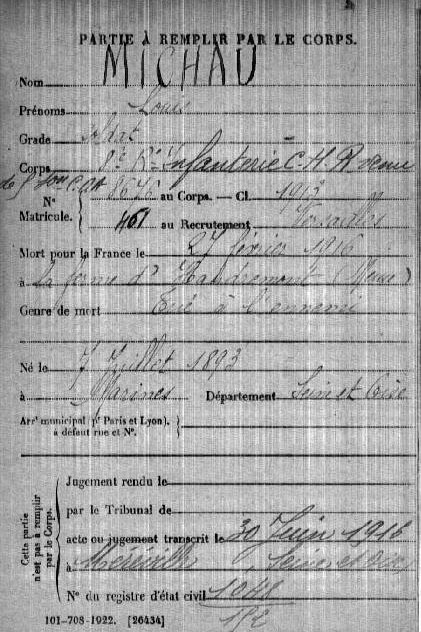 PARTIE À REMPLIR PAR LE CORPS.
Nom MICHAU
Prénoms Louis
Grade Sldat
Corps 8e Infanterie C.H.R.
N° 8676 au Corps. — Cl. 1913
Matricule. 461 au Recrutement Versailles
Mort pour la France le 27 février 1916
à la ferme d'Haudromont (Meuse)
Genre de mort Tué à l'ennemi
Né le 7 Juillet 1893
à Marines Département Seine et Oise
Arrt municipal (pr Paris et Lyon),
à défaut rue et N°.
Cette partie
n'est pas à remplir
par le Corps.
Jugement rendu le
par le Tribunal de
acte ou jugement transcrit le 30 Juin 1916
à Méréville Seine et Oise
N° du registre d'état civil 1048
101-708-1922. [26434]